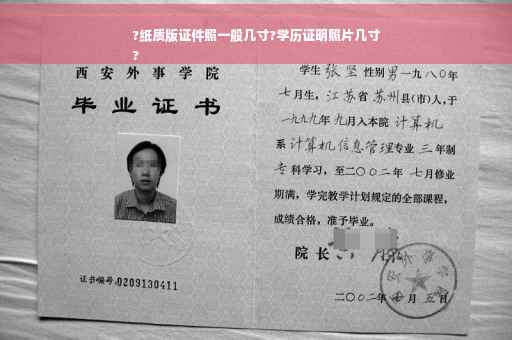 ?纸质版证件照一般几寸?学历证明照片几寸
?
西安外事学院
毕业证书
证书编号:0209130411
学生张坚性别男一九八〇年
七月生,江苏省苏州县(市)人,于
一九九九年九月入本院计算机
系计算机信息管理专业三年制
专科学习,至二〇〇二年七月修业
期满,学完教学计划规定的全部课程,
成绩合格,准予毕业。
院长
二〇〇二年 月五日